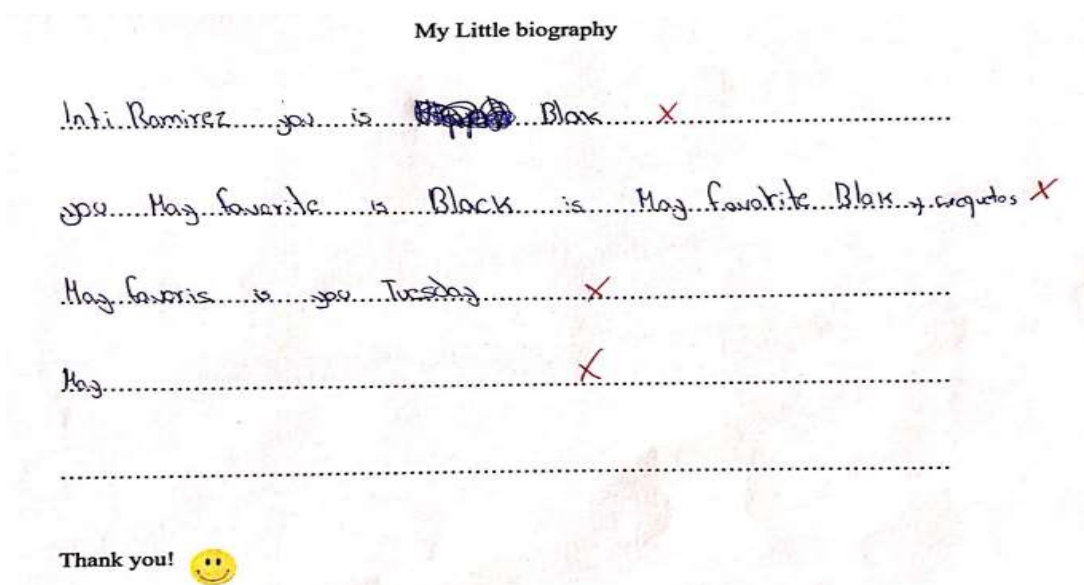 My Little biography
Inti Ramirez you is Blak
you May favorite is Black is May favorite Blak y
May favoris is you Tuesday
May
Thank you!